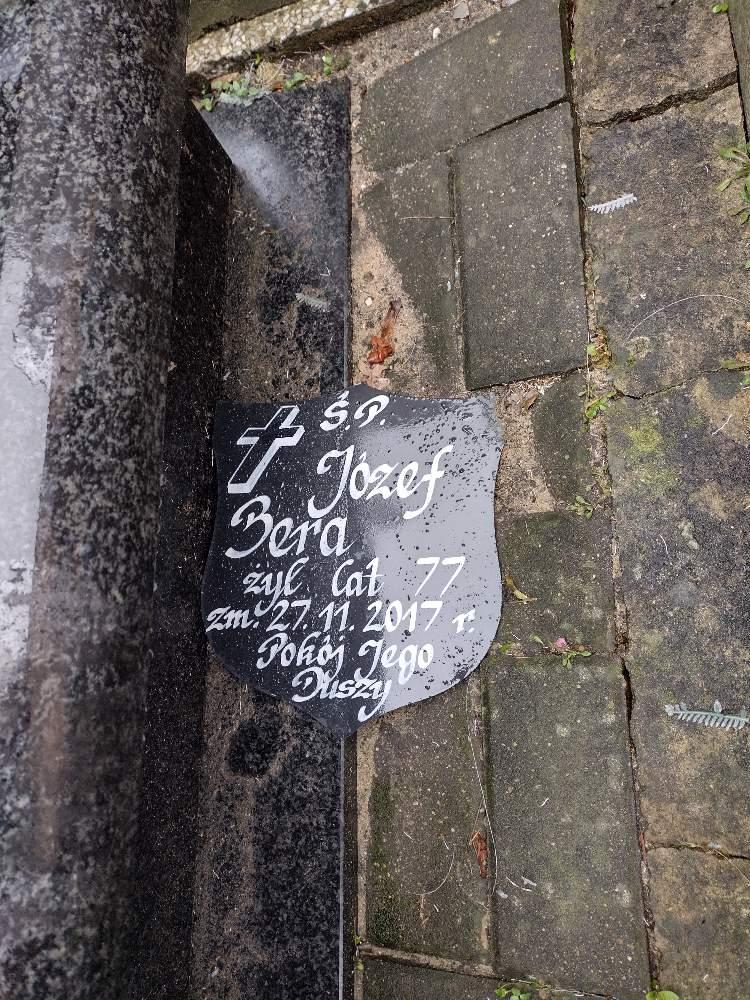 Ś.P.
Józef
Bera
żył lat 77
zm. 27.11.2017 r.
Pokój Jego
Duszy